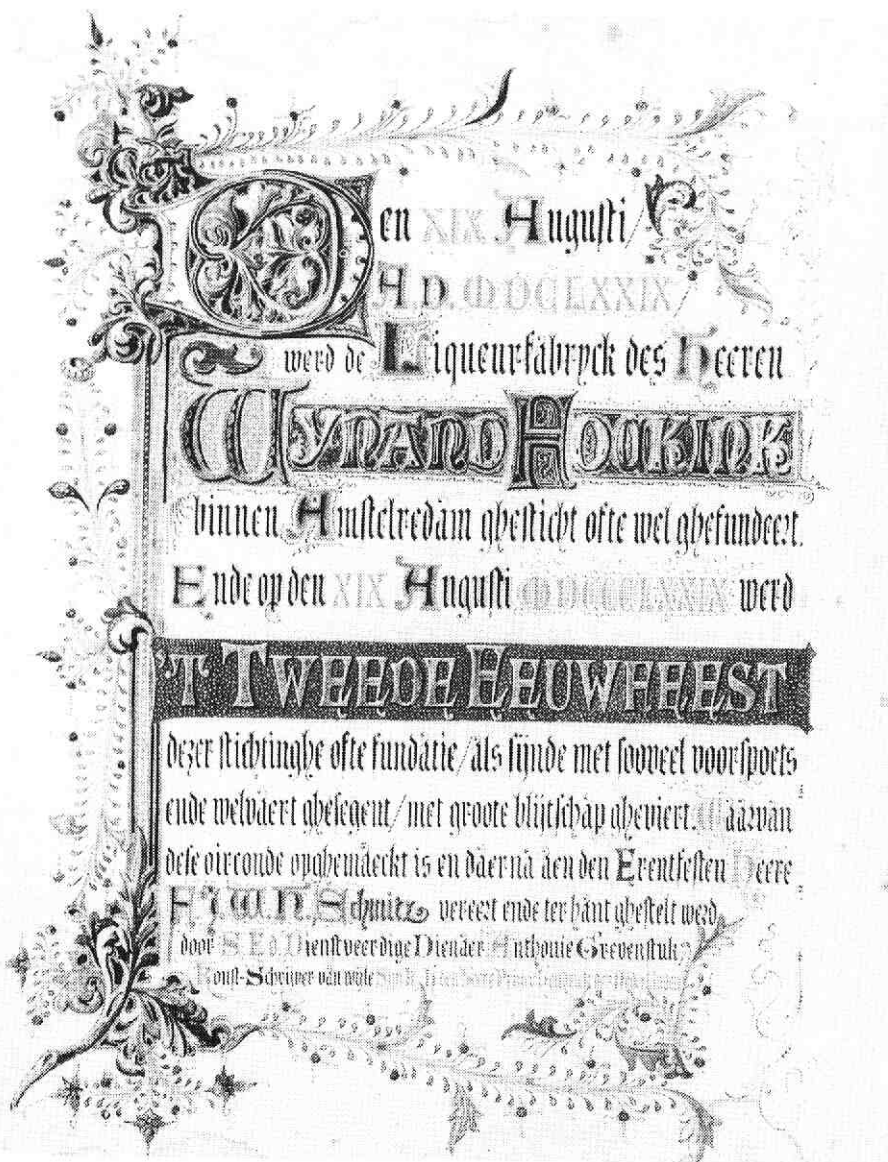 Den XIX Augusti/
A.D. MDCLXXIX
werd de Liqueurfabryck des Heeren
WYNAND FOCKINK
binnen Amstelredam ghesticht ofte wel ghefundeert.
Ende op den XIX Augusti MDCCCLXXIX werd
'T TWEEDE EEUWFEEST
dezer stichtinghe ofte fundatie/als sijnde met sooveel voorspoets
ende welvaert ghesegent/met groote blijtschap gheviert. Waarvan
dese oirconde opghemaeckt is en daerna aen den Erentfesten Heere
F.J.W.H. Schmitz vereert ende ter hant ghestelt werd
door S. Ed. Dienstveerdige Dienaer Anthonie Grevenstuk
Konst-Schrijver van wyle